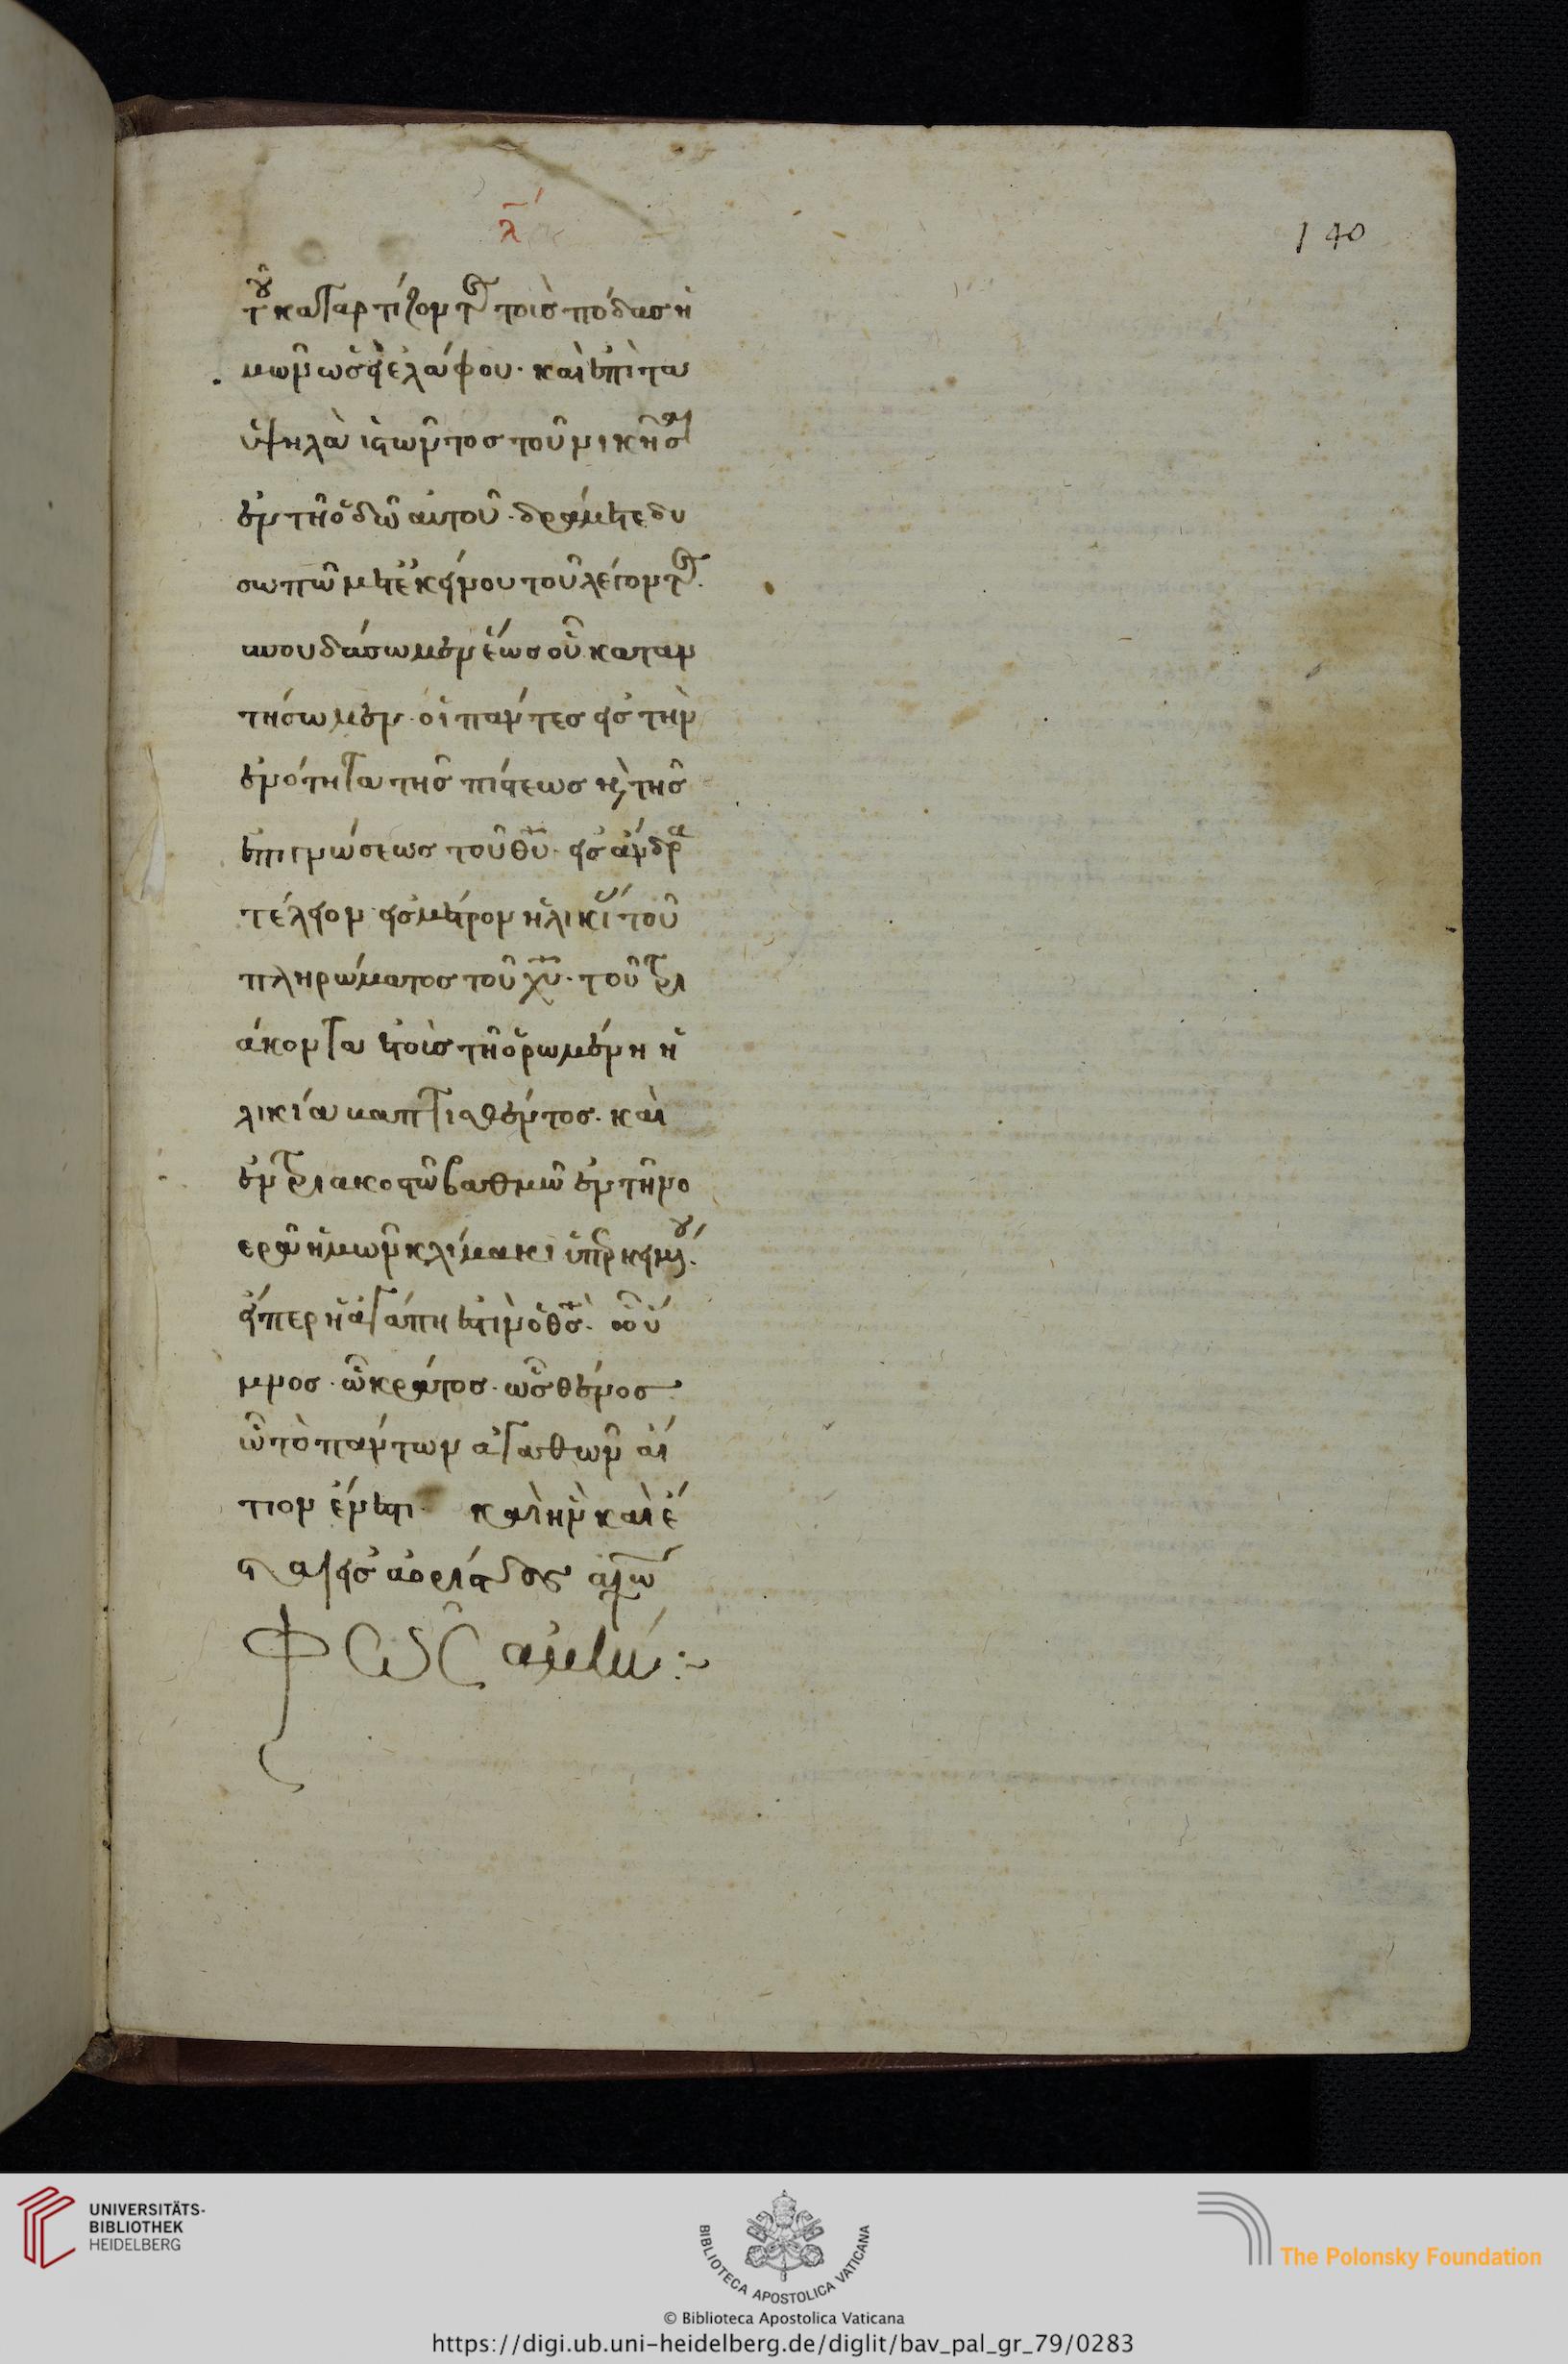 λ´
140
τοῦ καταρτίζοντος τοὶς πόδας ἡ
μῶν ὡσεὶ ἐλάφου· καὶ ἐπὶ τὰ
ὑψηλὰ ἱστῶντος τοῦ νικῆσαι
ἐν τῆ ὁδῶ αὐτοῦ· δράμετε δυ
σωπῶ μετ' ἐκείνου τοῦ λέγοντος·
σπουδάσωμεν ἕως οὗ καταν
τήσωμεν οἱ πάντες εἰς τὴν
ἑνότητα τῆς πίστεως κ(αὶ) τῆς
ἐπιγνώσεως τοῦ θ̅υ̅· εἰς ἄνδρα
τέλειον εἰς μέτρον ἡλικίας τοῦ
πληρώματος τοῦ χ̅υ̅· τοῦ τρι
άκοντα ἔτοις τῆ ὁρωμένη ἡ
λικία βαπτισθέντος· καὶ
ἐν τριακοστῶ βαθμῶ ἐν τῆ νο
ερᾶ ἡμῶν κλίμακι ὑπερκειμένου·
εἴπερ ἡ ἀγάπη ἐστὶν ὁ θ̅ς̅· ὧ ὕ
μνος· ὧ κράτος· ὧ σθένος
ὧ τὸ πάντων ἀγαθῶν αἴ
τιον ἔνεστι· καὶ ἦν καὶ ἔ
σται εἰς ἀορίστους αἰῶ
νας ἀμήν :~
UNIVERSITÄTS-
BIBLIOTHEK
HEIDELBERG
BIBLIOTECA APOSTOLICA VATICANA
The Polonsky Foundation
© Biblioteca Apostolica Vaticana
https://digi.ub.uni-heidelberg.de/diglit/bav_pal_gr_79/0283